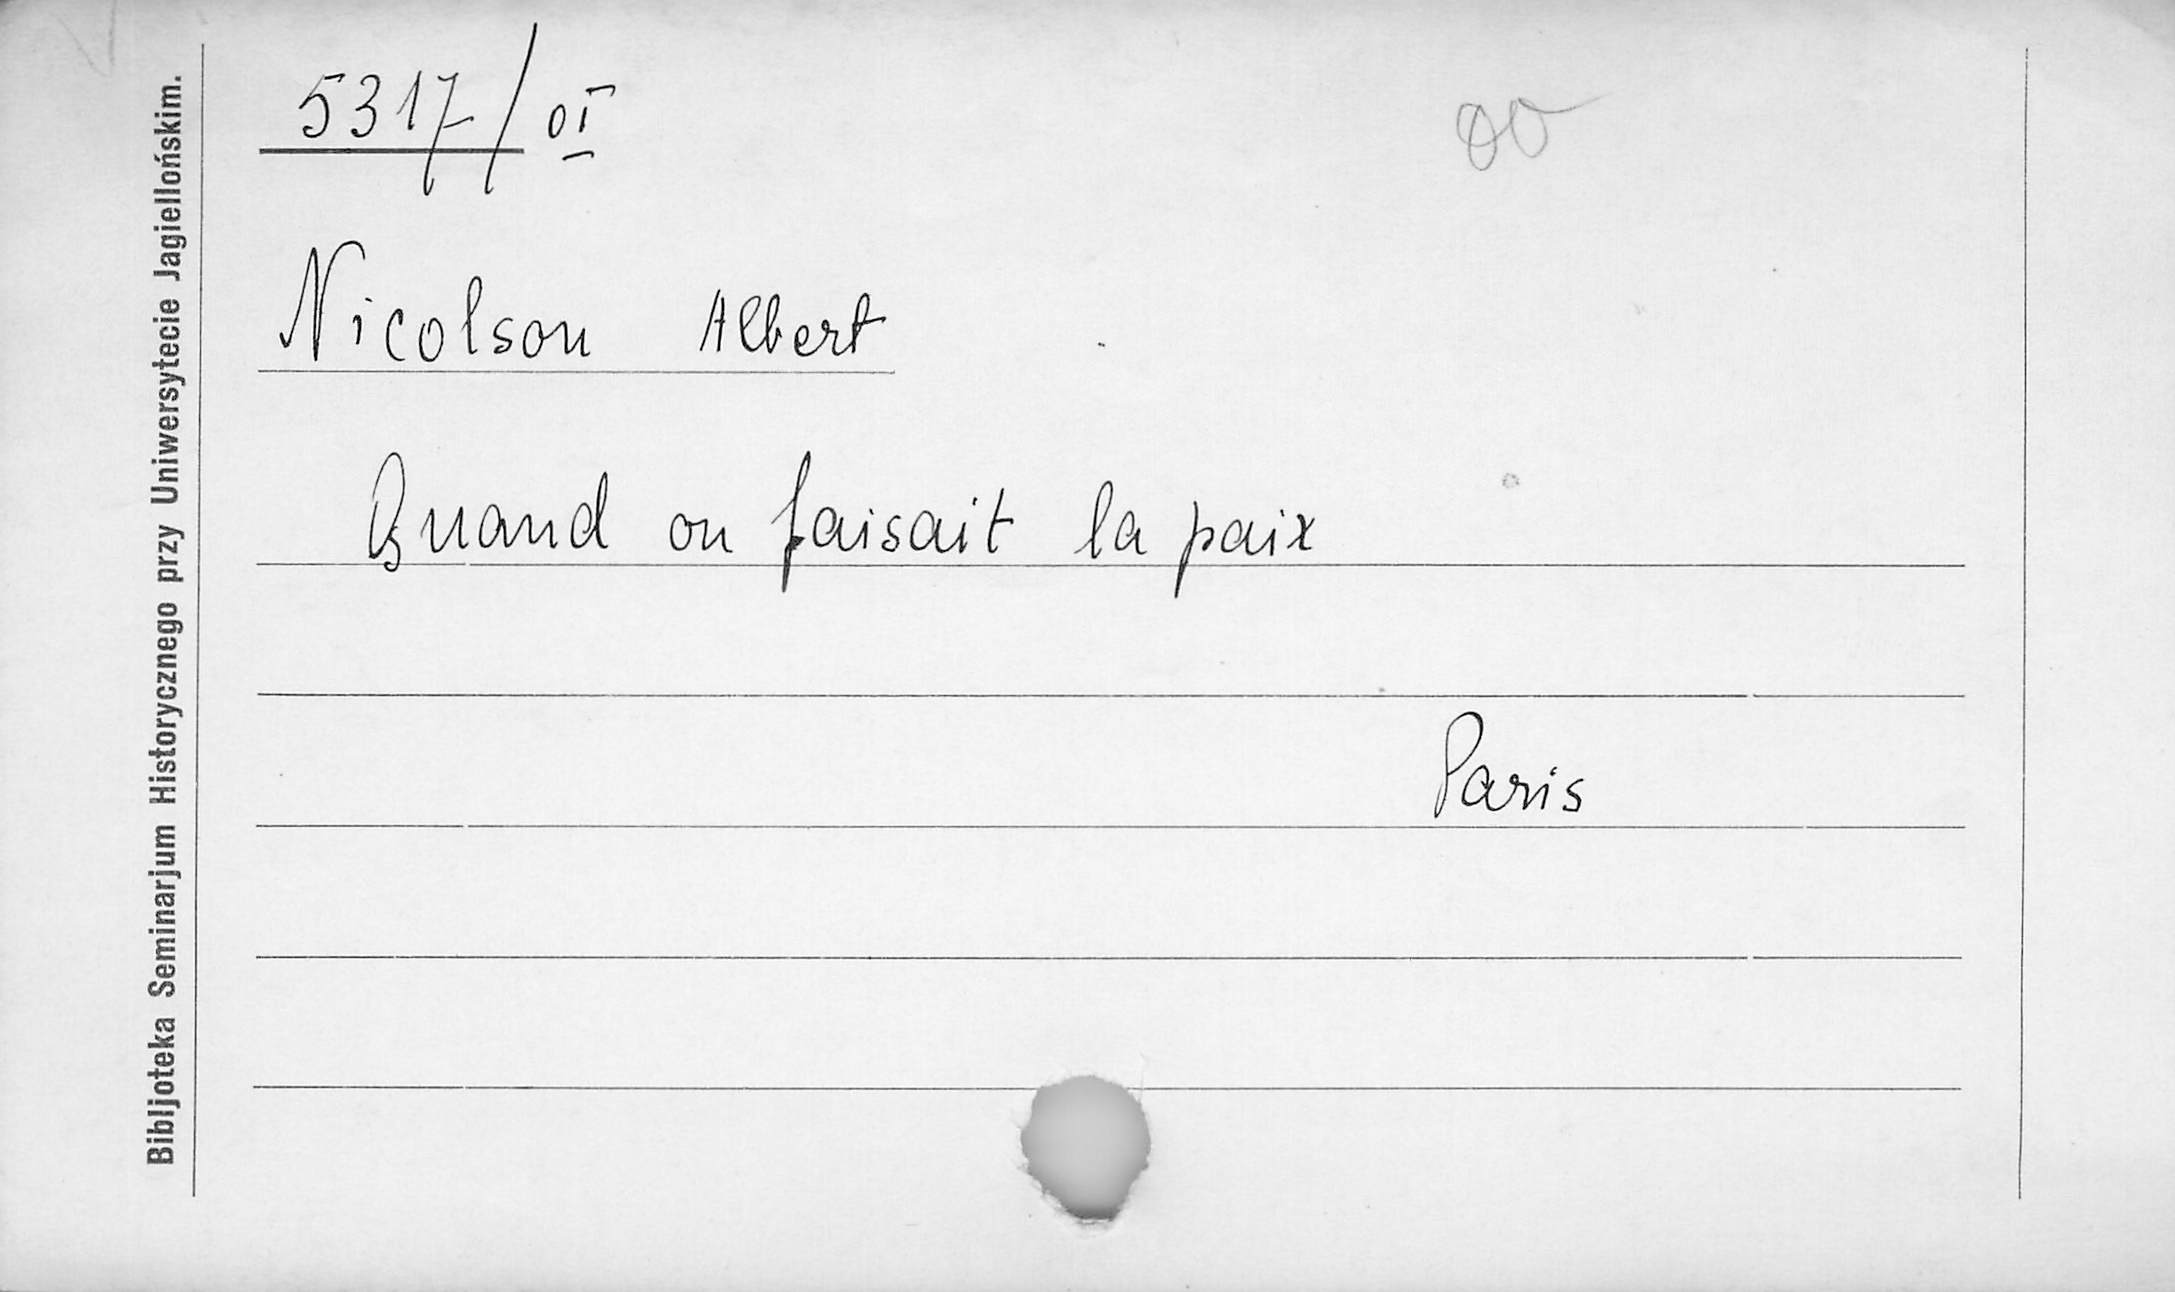 5317/
Nicolson Albert
Quand on faisait la paix
Paris
Bibljoteka Seminarjum Historycznego przy Uniwersytecie Jagiellońskim.